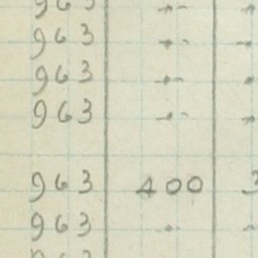 963
963
963
963
963 400
963
963